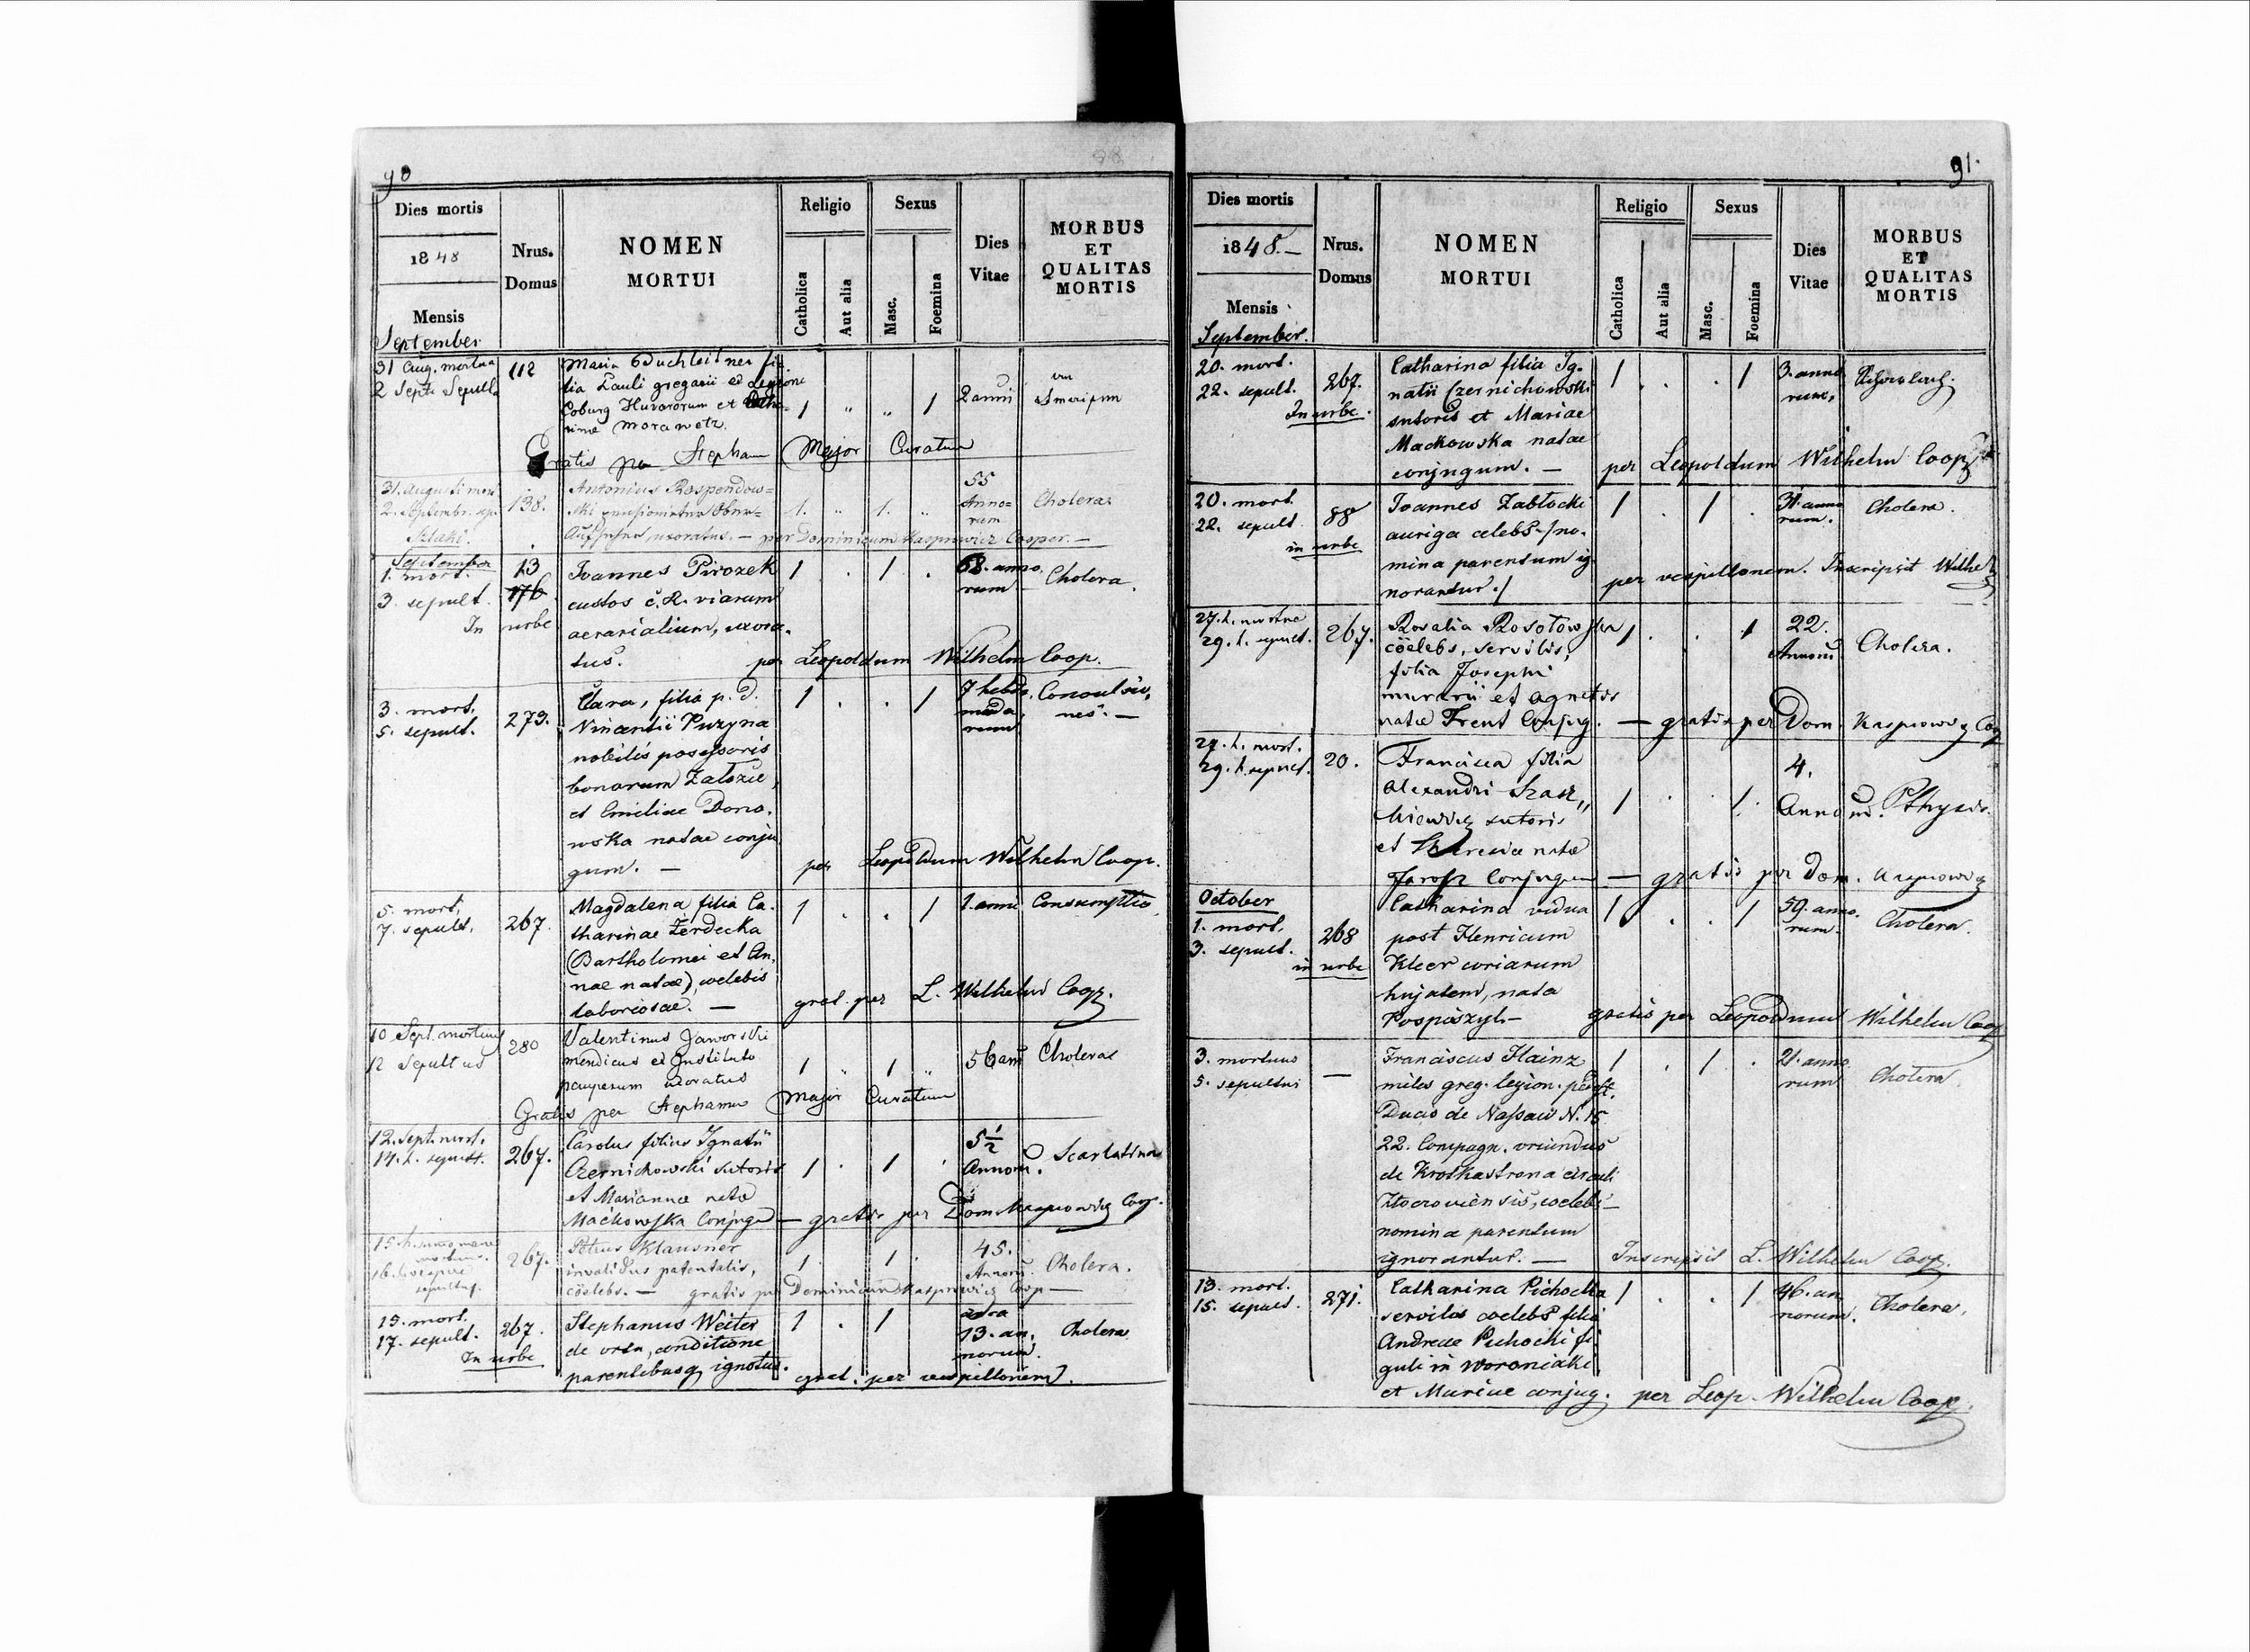 90
Dies mortis
1848
Mensis
September
Nrus. Domus
NOMEN
MORTUI
Religio
Catholica
Aut alia
Sexus
Masc.
Foemina
Dies
Vitae
MORBUS
ET
QUALITAS
MORTIS
31 Aug. mortua
2 Sept. Sepulta
112
Maria fi-
lia Pauli gregarii ex Legione
Coburg Husarorum et Catha-
rinae Morawetz.
1 " " 1
2 anni
Gratis per Stephan Major Curatum
31. Augusti mort.
2. Septembr. sep.
138.
Antonius Rospendow=
ski pensionatus
uxoratus. — per Dominicum Kasprowicz Cooper. —
1. " 1. "
55
Anno=
rum
Cholera
September
1. mort.
3. sepult.
In urbe
13
176
Joannes Pirozek
custos c. R. viarum
aerarialium, uxora-
tus. per Leopoldum Wilhelm Coop.
1 . 1 .
68. anno
rum
Cholera
3. mort.
5. sepult.
279.
Clara, filia p. d.
Vincentii Puzyna
nobilis possessoris
bonorum Zalozie,
et Emiliae Dono-
wska natae conju
gum. — per Leopoldum Wilhelm Coop.
1 . . 1
7 hebdo
mada
rum
Convulsio,
nes. —
5. mort.
7. sepult.
267.
Magdalena filia Ca-
tharinae Zerdecka
(Bartholomei et An-
nae natae), coelebis
laboriosae. — grat. per L. Wilhelm Coop.
1 . . 1
1. anni
Consumptio
10 Sept. mortuus
12 Sepultus
280
Valentinus Jaworski
mendicus ex Instituto
pauperum uxoratus
1 " 1 "
56 ann
Cholerae
Gratis per Stephanum Major Curatum
12. Sept. mort.
14. h. sepult.
267.
Carolus filius Ignatii
Czernichowski sutoris
et Mariannae natae
Mackowska Conjugu — gratis per Dom. Kasprowicz Coop.
1 . 1 .
5½
Annoru.
Scarlatina
267.
Petrus Klausner
invalidus patentalis,
cölebs. — gratis per Dominicum Kasprowicz Coop —
1. 1.
45.
Annoru.
Cholera.
15. mort.
17. sepult.
In urbe
267.
Stephanus Weiter
de ortu, conditione
parentibusq ignotus. grat. per vespillonem.
1 . 1
13. an.
norum.
Cholera
91.
Dies mortis
1848.—
Mensis
September.
Nrus.
Domus
NOMEN
MORTUI
Religio
Catholica
Aut alia
Sexus
Masc.
Foemina
Dies
Vitae
MORBUS
ET
QUALITAS
MORTIS
20. mort.
22. sepult.
In urbe.
267.
Catharina filia Ig-
natii Czernichowski
sutoris et Mariae
Mackowska natae
conjugum. — per Leopoldum Wilhelm Coop
1 . . 1
3. anno
rum.
20. mort.
22. sepult.
in urbe
88
Joannes Zabłocki
auriga celebs /no-
mina parentum ig-
norantur./ per vespillonem. Inscripsit Wilhel
1 . 1 .
31. anno
rum.
Cholera.
27. h. mortua
29. h. sepult.
267.
Rosalia Rosołowska
cölebs, servilis,
filia Josephi
murarii et Agnetis
natae Trent Conjug. — gratis per Dom. Kasprowicz Coop
1 . . 1
22.
Annoru.
Cholera.
27. h. mort.
29. h. sepult.
20.
Francisca filia
Alexandri Szasz„
kiewicz sutoris
et Theresiae natae
Jarosz Conjugum — gratis per Dom. Kasprowicz
1 . . 1.
4.
Annoru.
Pthysis.
October
1. mort.
3. sepult.
in urbe
268
Catharina vidua
post Henricum
Kleer coriarum
hujatem, nata
Pospiszyl. — gratis per Leopoldum Wilhelm Coop
1 . . 1
59. anno.
rum.
Cholera.
3. mortuus
5. sepultus
—
Franciscus Hainz
miles greg. legion. pedest.
Ducis de Nassau N. 15
22. Compagn. oriundus
de Krotkastrona circuli
Złoczoviensis, coelebs —
nomina parentum
ignorantur. — Inscripsit L. Wilhelm Coop.
1 . 1 .
21. anno
rum
Cholera.
13. mort.
15. sepult.
271.
Catharina Pichocka
servilis coelebs filia
Andreae Pichocki fi
guli in Woroniaki
et Mariae conjug. per Leop. Wilhelm Coop.
1 . . 1
46. an
norum.
Cholera.